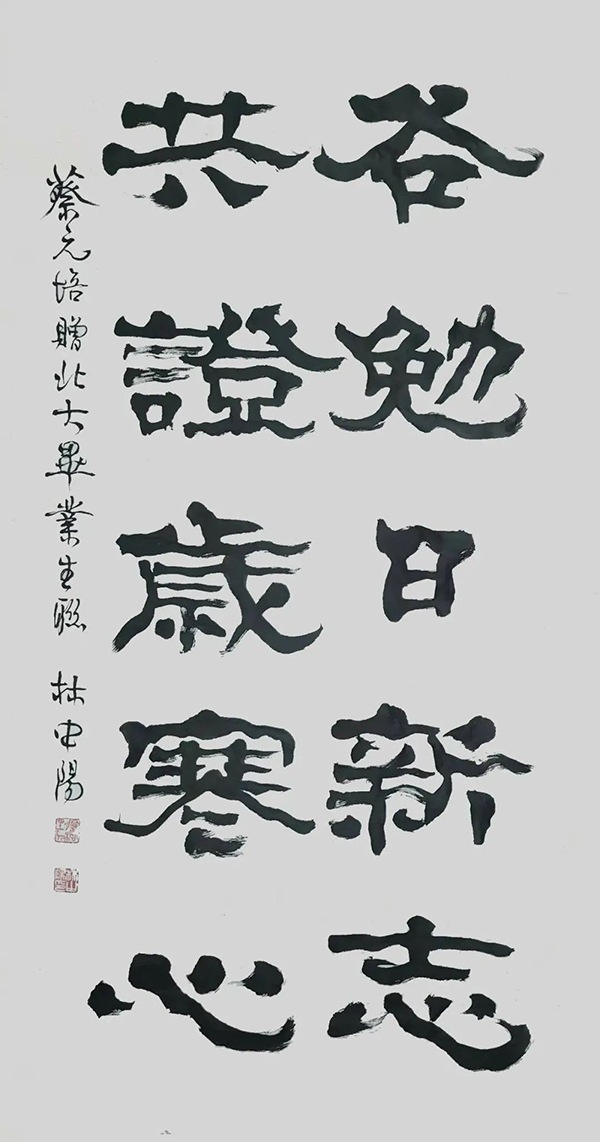 各勉日新志
共證歲寒心
蔡元培贈北大畢業生聯 林中陽